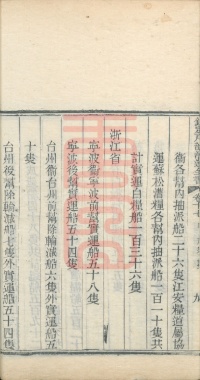 衛各幫內抽派船二十六隻江安糧道屬協
運蘇松漕糧各幫內抽派船一百一十隻共
計實運白糧船一百三十六隻
浙江省
寧波衛寧波前幫實運船五十八隻
寧波後幫實運船五十四隻
台州衛台州前幫除輪減船六隻外實運船五
十隻
台州後幫除輪減船七隻外實運船五十四隻